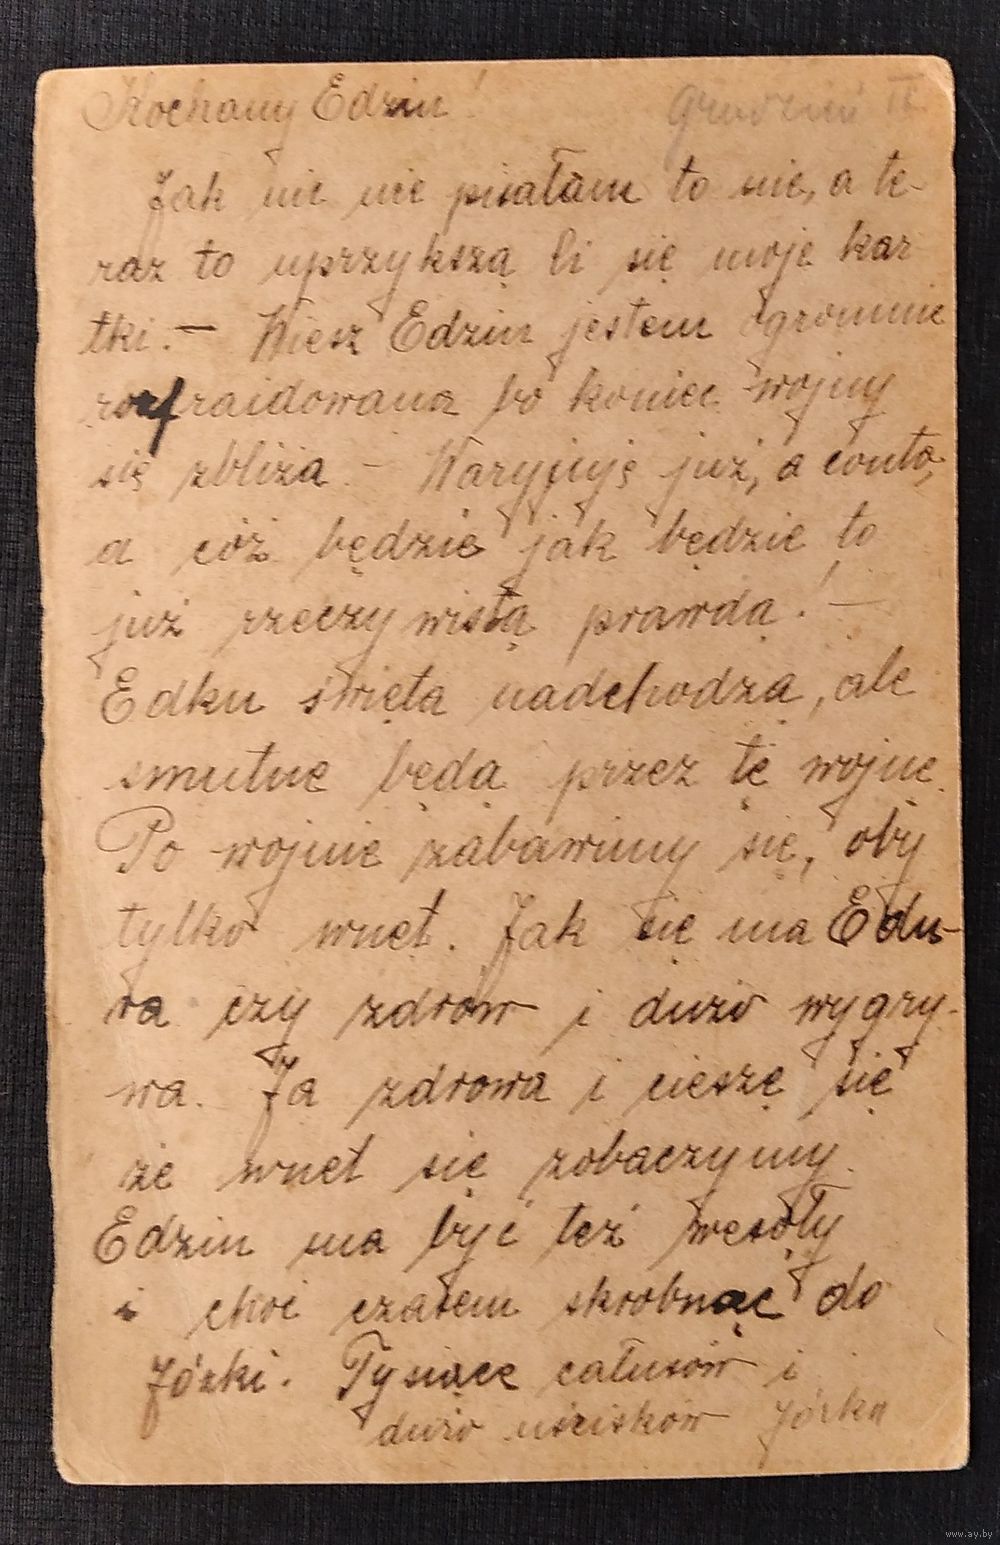 Kochany Edziu! Grudzień II
Jak nic nie pisałam to nic, a te-
raz to uprzykszą Ci się moje kar
tki. — Wiesz Edziu jestem ogromnie
rozfraidowana bo koniec wojny
się zbliża — Waryjuję już, a conto,
a cóż będzie jak będzie to
już rzeczywistą prawdą! —
Edku święta nadchodzą, ale
smutne będą przez tę wojnę.
Po wojnie zabawimy się, oby
tylko wnet. Jak się ma Edu-
ra czy zdrów i dużo wygry-
wa. Ja zdrowa i cieszę się
że wnet się zobaczymy.
Edziu ma być też wesoły
i choć czasem skrobnąć do
Józki. Tysiące całusów i
dużo uścisków Józka
www.ay.by